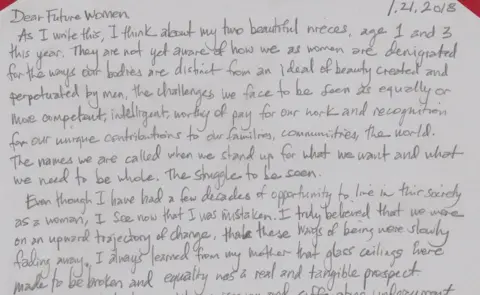 1.21.2018
Dear Future Women
As I write this, I think about my two beautiful nieces, age 1 and 3
this year. They are not yet aware of how we as women are denigrated
for the ways our bodies are distinct from an ideal of beauty created and
perpetuated by men, the challenges we face to be seen as equally or
more competent, intelligent, worthy of pay for our work and recognition
for our unique contributions to our families, communities, the world.
The names we are called when we stand up for what we want and what
we need to be whole. The struggle to be seen.
Even though I have had a few decades of opportunity to live in this society
as a woman, I see now that I was mistaken. I truly believed that we were
on an upward trajectory of change, that these ways of being were slowly
fading away. I always learned from my mother that glass ceilings were
made to be broken and equality was a real and tangible prospect